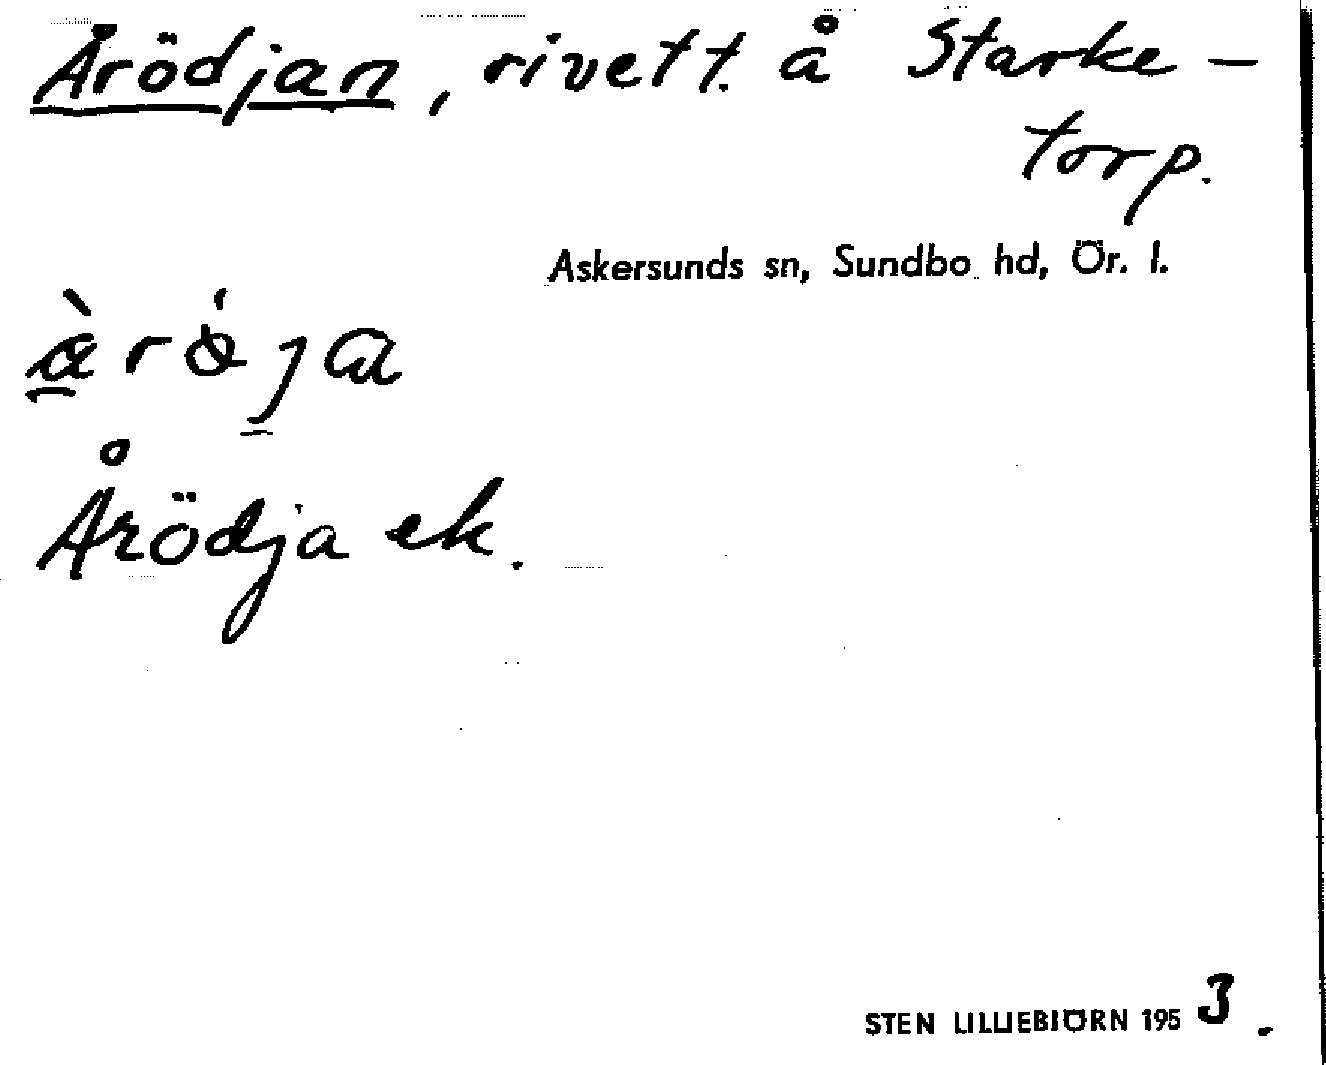 Årödjan, rivett. å Starke-
torp.
Askersunds sn, Sundbo hd, Ör. l.
Årödja ek.
STEN LILLIEBJÖRN 1953.